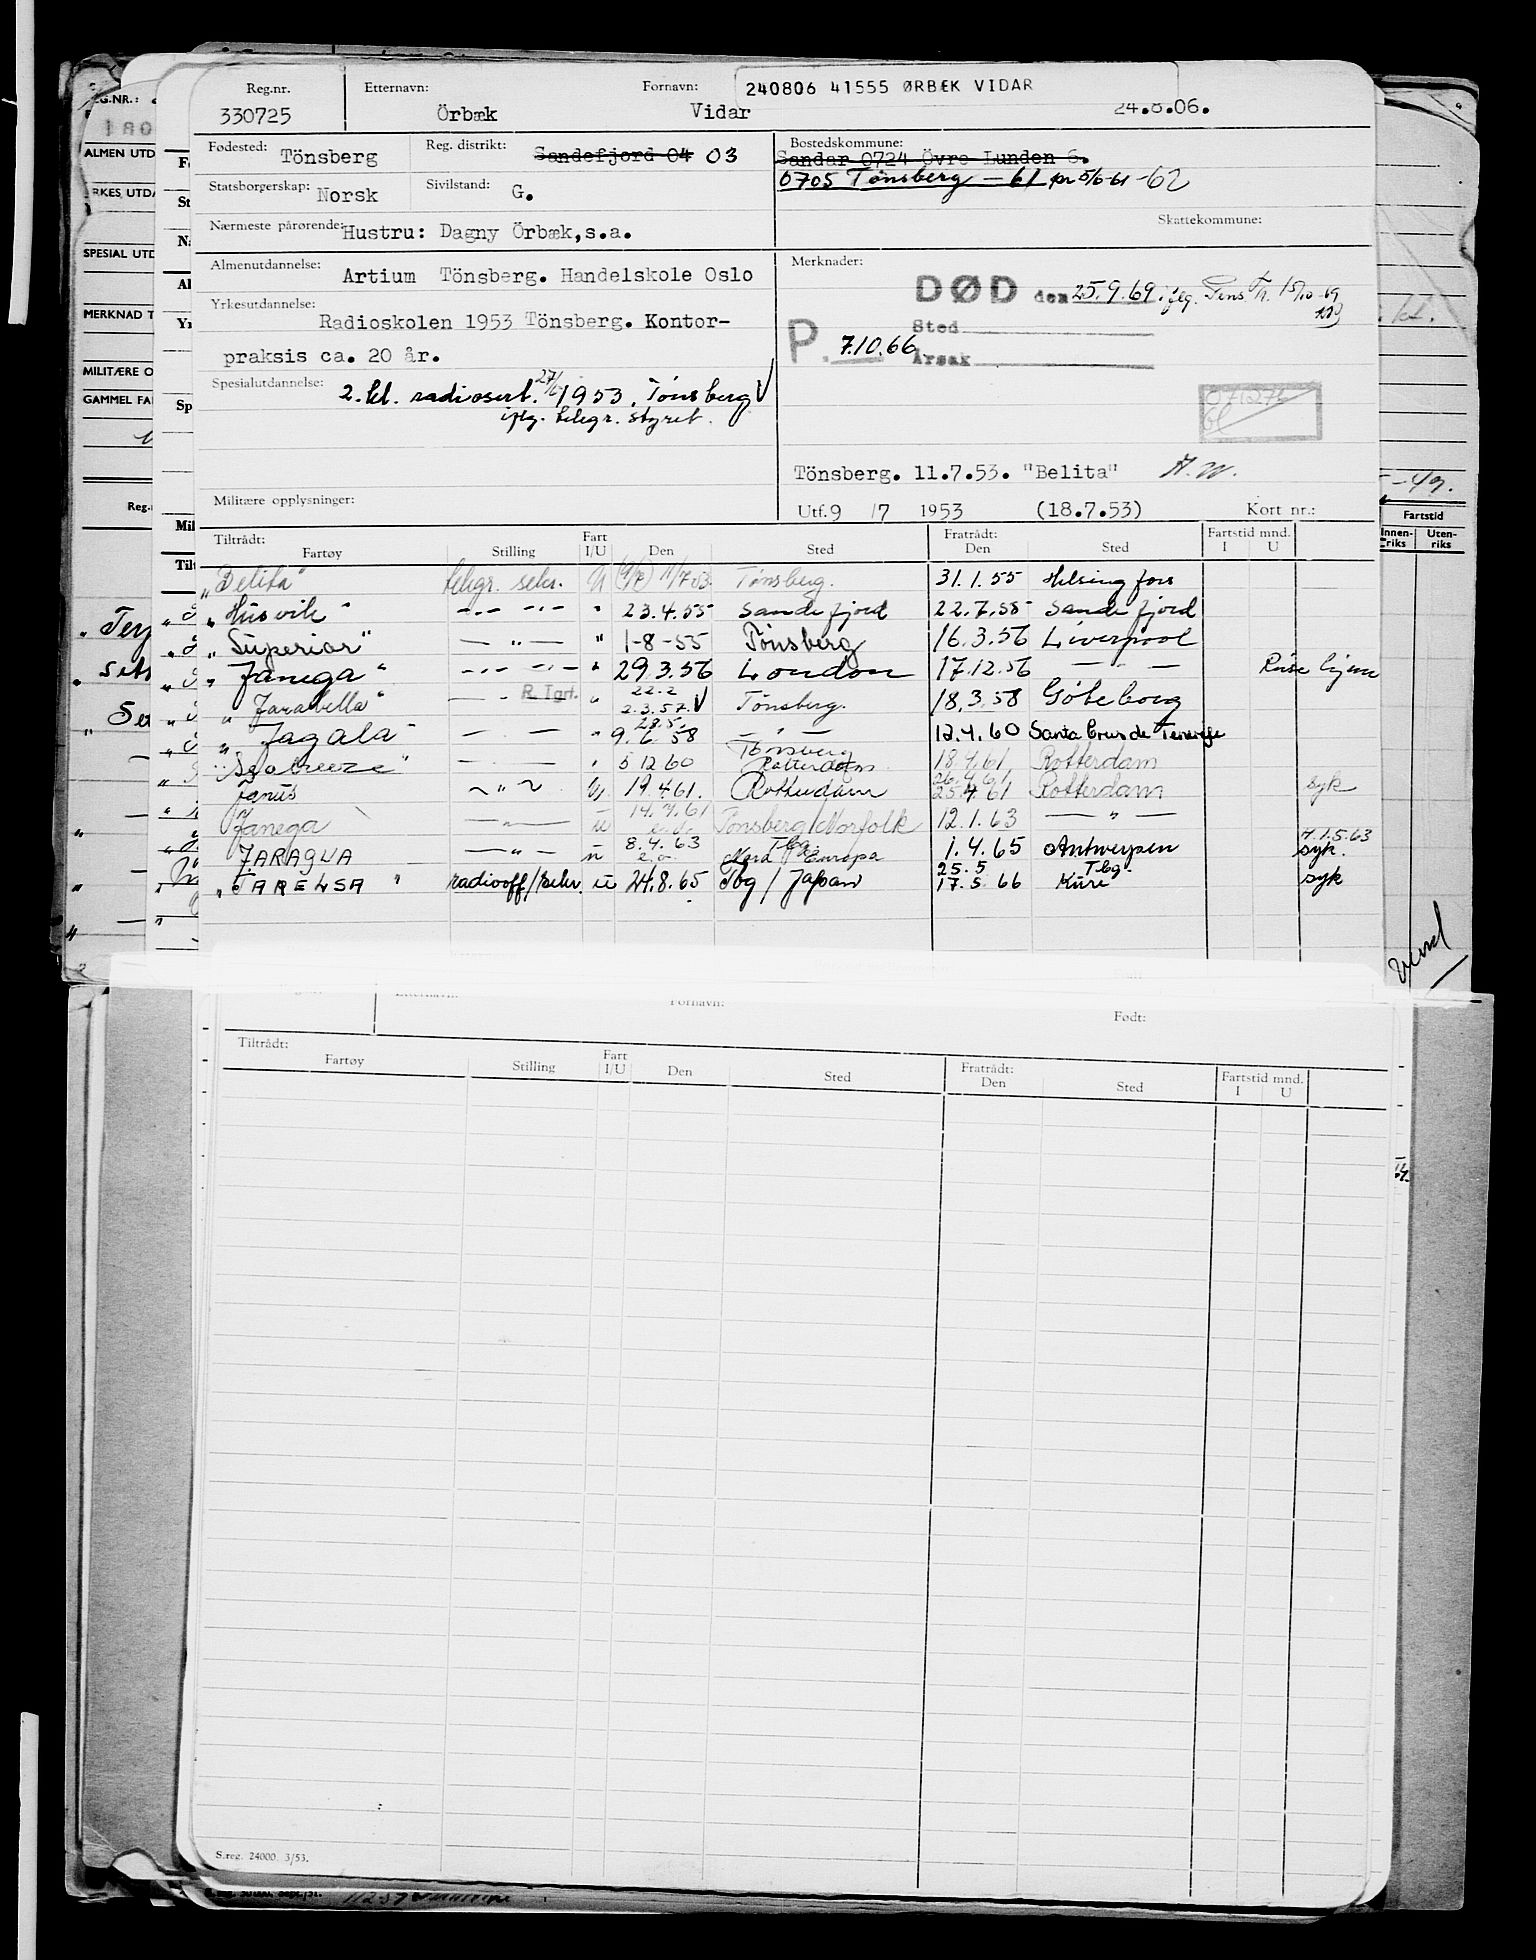 Reg.nr. Etternavn: Fornavn: 240806 41555 ØRBÆK VIDAR
330725 Örbæk Vidar 24.8.06.
Fødested: Tönsberg Reg. distrikt: Sandefjord 04 03 Bostedskommune:
Sandar 0724 Övre Lunden 6.
0705 Tönsberg - 61 pr 5/6-61 -62
Statsborgerskap: Norsk Sivilstand: G.
Skattekommune:
Nærmeste pårørende: Hustru: Dagny Örbæk, s.a.
Almenutdannelse: Artium Tönsberg. Handelskole Oslo
Merknader:
DØD den 25.9.69 iflg. Pens Tr. 15/10-69
Sted
P. 7.10.66 Årsak
Yrkesutdannelse: Radioskolen 1953 Tönsberg. Kontor-
praksis ca. 20 år.
Spesialutdannelse: 2. kl. radiosert. 1953. Tönsberg
iflg. telegr. styret.
Tönsberg. 11.7.53. "Belita"
Militære opplysninger:
Utf. 9 /7 1953 (18.7.53) Kort nr.:
Tiltrådt: Fartøy Stilling Fart I/U Den Sted Fratrådt: Den Sted Fartstid mnd. I U
"Belita" telegr. sekr. U (9/7) 11/7 53. Tönsberg. 31.1.55 Helsingfors
"Husvik" -"- -"- " 23.4.55 Sandefjord 22.7.55 Sandefjord
"Superior" - " - " 1-8-55 Tönsberg 16.3.56 Liverpool
"Janega" -"- -"- " 29.3.56 London 17.12.56 - " -
"Jarabella" - " R.Tgrf. " 22.2 2.3.57. Tönsberg. 18.3.58 Göteborg
"Jagala" - - " 28.5. 9.6.58 - " - 12.4.60 Santa Cruz de Tenerife
"Seabreeze" - - " 5 12 60 Tönsberg Rotterdam 18.4.61 Rotterdam
Janus - " - U 19.4.61. Rotterdam 26.4.61 25.4.61 Rotterdam syk
Janega - " - u 14.7.61 Tönsberg/Norfolk 12.1.63 - " -
JARAGUA - " - u 8.4.63 Tbg. Nord Europa 1.4.65 Antwerpen syk.
"JARELSA" radiooff/sekr. u 24.8.65 Tbg / Japan 25.5 17.5.66 Tbg. Kure syk
EG.NR.:
ALMEN UTD
RKES UTDA
SPECIAL UTD
MERKNAD T
MILITÆRE O
GAMMEL FA
Fartstid
Innen-riks Uten-riks
Etternavn: Fornavn: Født:
Tiltrådt: Fartøy Stilling Fart I/U Den Sted Fratrådt: Den Sted Fartstid mnd. I U
S.reg. 24000. 3/53.